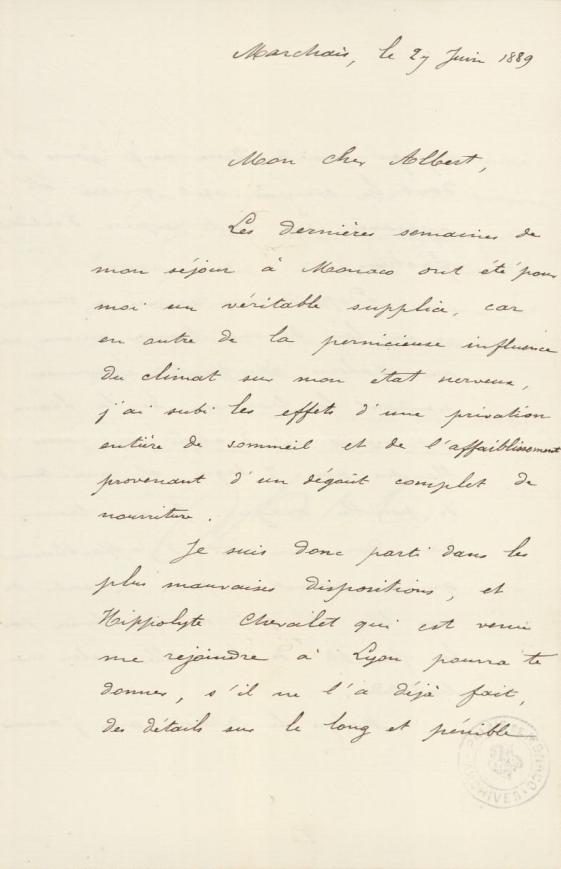 Marchais, le 27 Juin 1889
Mon cher Albert,
Les dernières semaines de
mon séjour à Monaco ont été pour
moi un véritable supplice, car
en outre de la pernicieuse influence
du climat sur mon état nerveux,
j'ai subi les effets d'une privation
entière de sommeil et de l'affaiblissement
provenant d'un dégoût complet de
nourriture.
Je suis donc parti dans les
plus mauvaises dispositions, et
Hippolyte Chevalet qui est venu
me rejoindre à Lyon pourra te
donner, s'il ne l'a déjà fait,
des détails sur le long et pénible
ARCHIVES